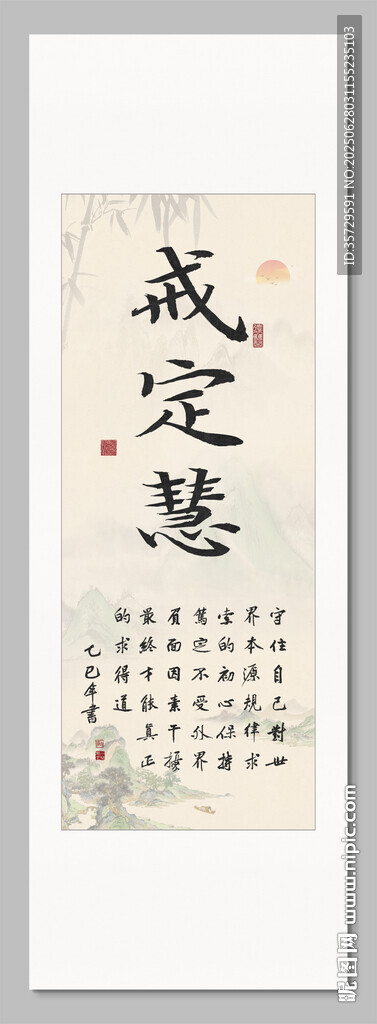 戒定慧
守住自己對世
界本源規律求
索的初心保持
篤定不受外界
負面因素干擾
最終才能真正
的求得道
乙巳年書
ID:35729591 NO:20250628031155235103
昵图网 www.nipic.com